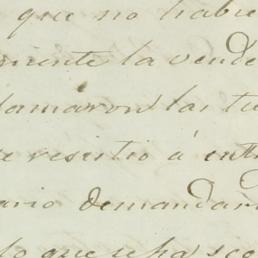 que no habie
mente la vende
lamaron las tie
e resistio á entr
ario demandar
lo que